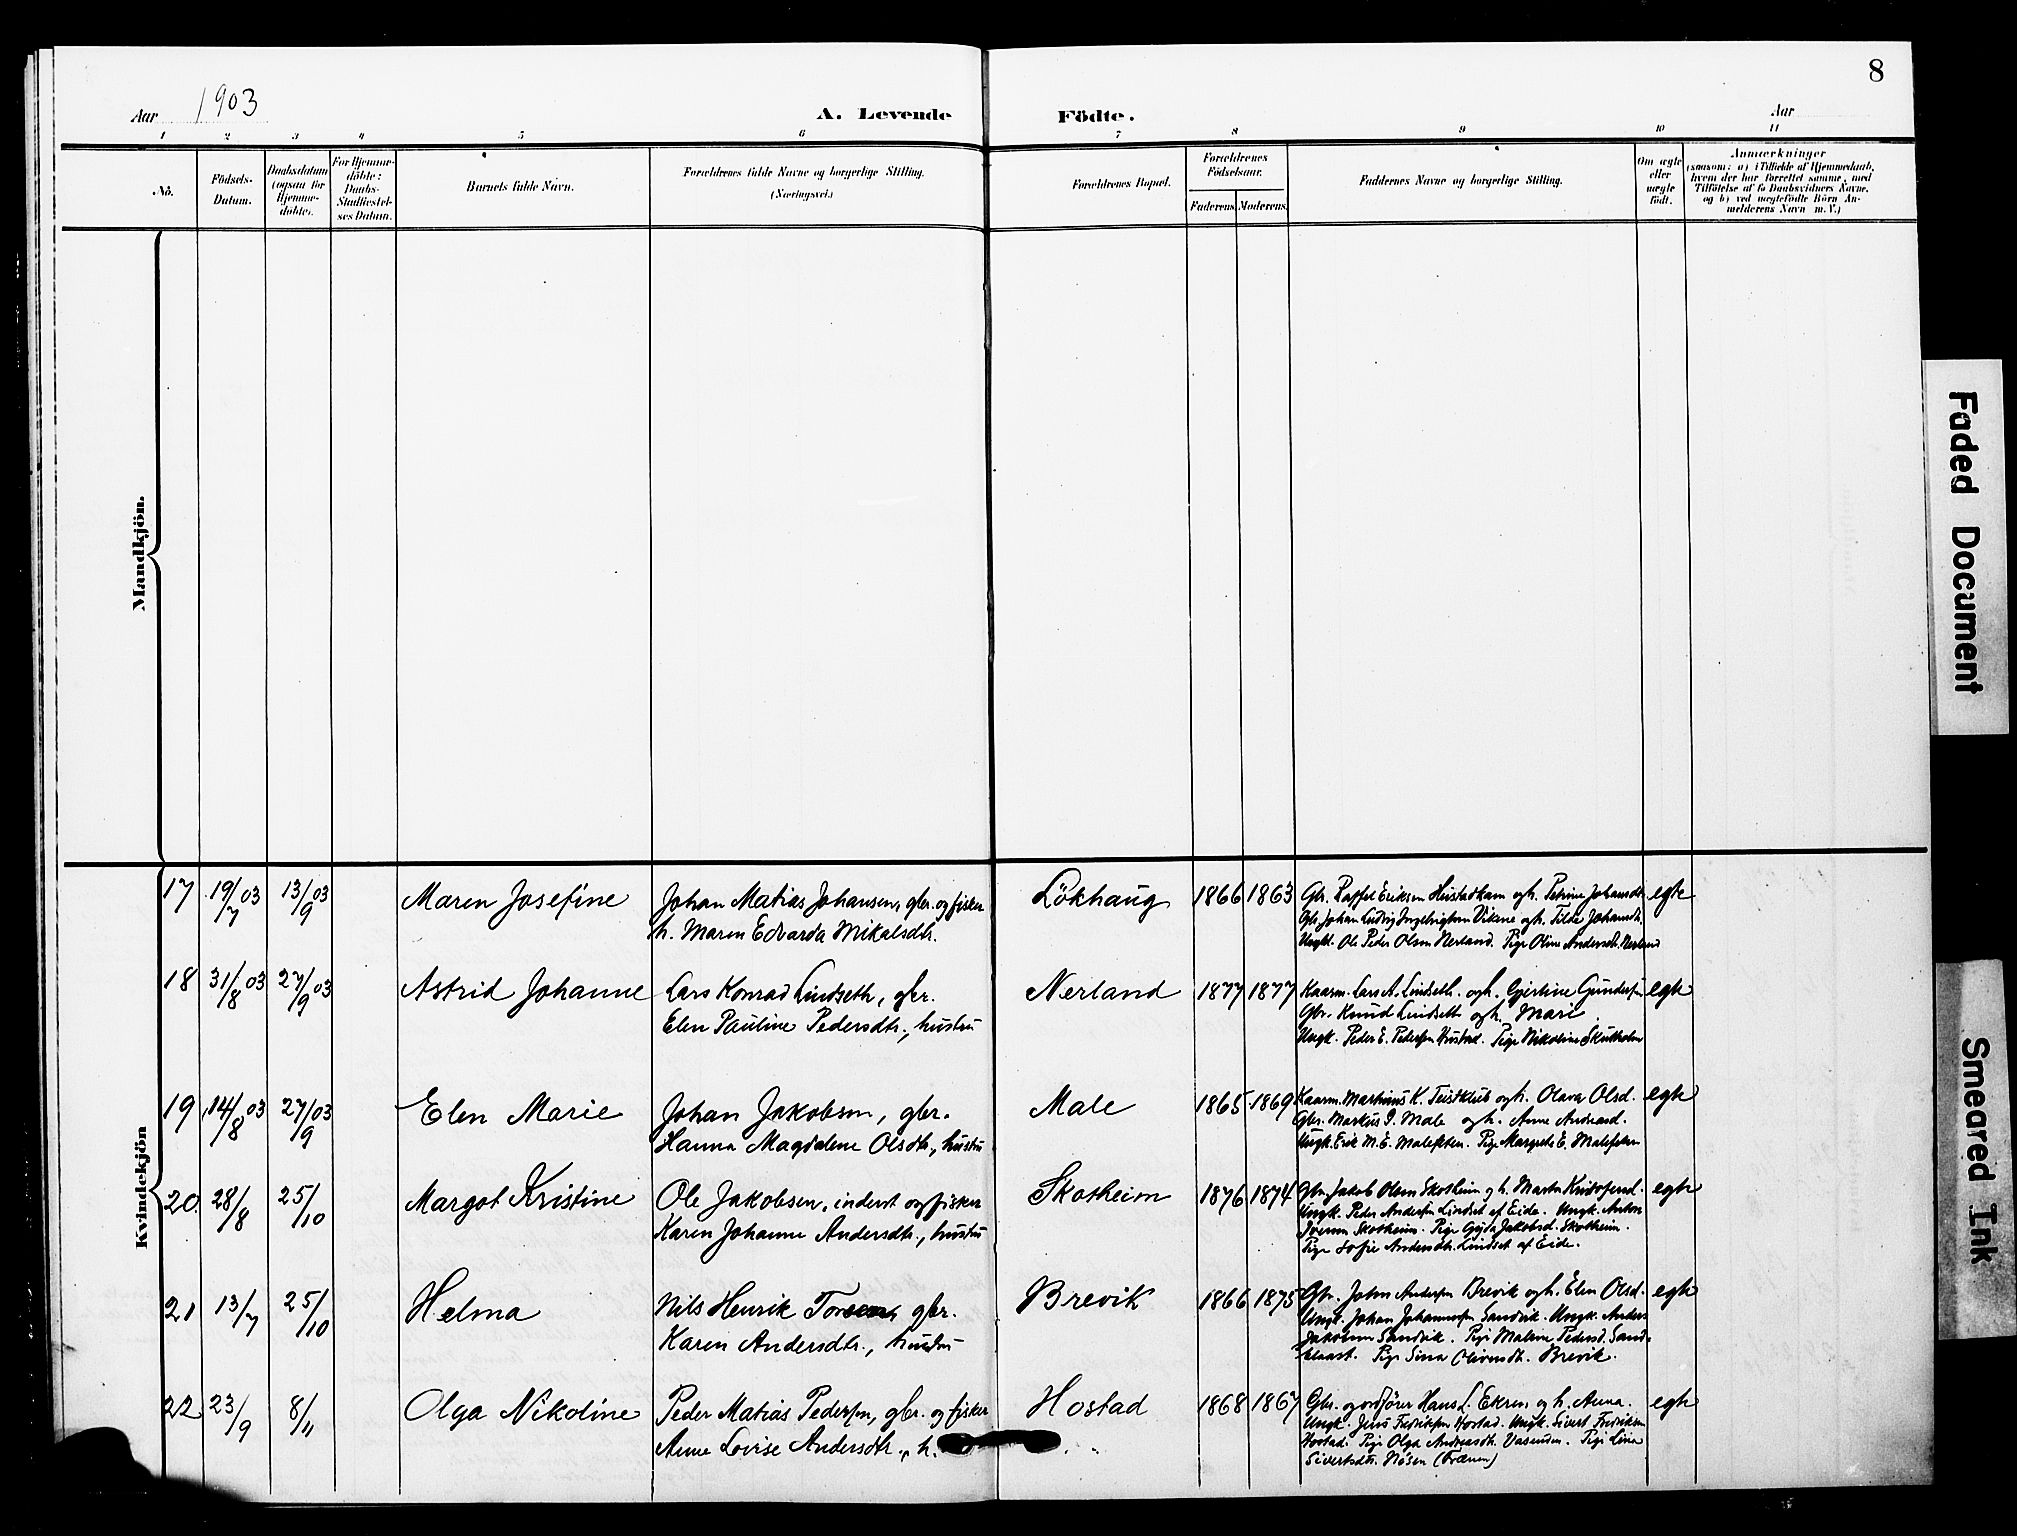 8
Aar 1903
A. Levende Födte.
Aar
1 2 3 4 5 6 7 8 9 10 11
No.
Födsels-
Datum.
Daabsdatum
(ogsaa for
Hjemme-
döbte).
For Hjemme-
döbte:
Daabs-
Stadfæstel-
ses Datum.
Barnets fulde Navn.
Forældrenes fulde Navne og borgerlige Stilling.
(Næringsvei.)
Forældrenes Bopæl.
Forældrenes
Födselsaar.
Faderens. Moderens.
Faddernes Navne og borgerlige Stilling.
Om ægte
eller
uægte
födt.
Anmærkninger
(saasom: a) i Tilfælde af Hjemmedaab,
hvem der har forrettet samme, med
Tilföielse af to Daabsvidners Navne,
og b) ved uægtefödte Börn An-
melderens Navn m. V.)
Mandkjön.
Kvindekjön
17 19/7 03 13/9 03 Maren Josefine Johan Matias Johansen, gbr. og fisker
h. Maren Edvarda Mikalsdtr.
Lökhaug 1866 1863 Gbr. Raffel Eriksen Hustadham og h. Petrine Johansdtr. egte
Gbr. Johan Ludvig Ingebrigtsen Vikene og h. Tilde Johansdtr.
Ungk. Ole Peder Olsen Nerland. Pige Oline Andersdt. Nerland
18 31/8 03 27/9 03 Astrid Johanne Lars Konrad Lindseth, gbr.
Elen Pauline Pedersdtr., hustru
Nerland 1877 1877 Kaarm. Lars A. Lindseth og h. Gjertine Gundersen egte
Gbr. Knud Lindseth og h. Mari.
Ungk. Peder E. Pedersen Hustad. Pige Nikoline Skutholm
19 14/8 03 27/9 03 Elen Marie Johan Jakobsen, gbr.
Hanna Magdalene Olsdtr., hustru
Male 1865 1869 Kaarm. Martinus K. Teistklub og h. Olava Olsd. egte
Gbr. Markus J. Male og h. Anne Andreasd.
Ungk. Erik M. E. Male. Pige Margrete E.
20 28/8 25/10 Margot Kristine Ole Jakobsen, inderst og fisker
Karen Johanne Andersdtr., hustru
Skotheim 1876 1874 Gbr. Jakob Olsen Skotheim og h. Marta Kristofersd. egte
Ungk. Peder Andersen Lindset af Eide. Ungk. Anton
Iversen Skotheim. Pige Gyda Jakobsd. Skotheim.
Pige Sofie Andersdtr. Lindset af Eide.
21 13/7 25/10 Helma Nils Henrik gbr.
Karen Andersdtr., hustru
Brevik 1866 1875 Gbr. John Andersen Brevik og h. Elen Olsd. egte
Ungk. Johan Johannessen Sandvik. Ungk. Anders
Jakobsen Sandvik. Pige Malene Pedersd. Sand-
blaast. Pige Sina Olivendt. Brevik.
22 23/9 8/11 Olga Nikoline Peder Matias Pedersen, gbr. og fisker
Anne Lovise Andersdtr., h.
Hostad 1868 1867 Gbr. og ordfører Hans L. Ekren og h. Anna. egte
Ungk. Jens Fredriksen Hostad. Ungk. Sivert Fredriksen
Hostad. Pige Olga Andreasdt. Vasenden. Pige Lina
Sivertsdtr. Nösen (Frænen)
Faded Document
Smeared Ink